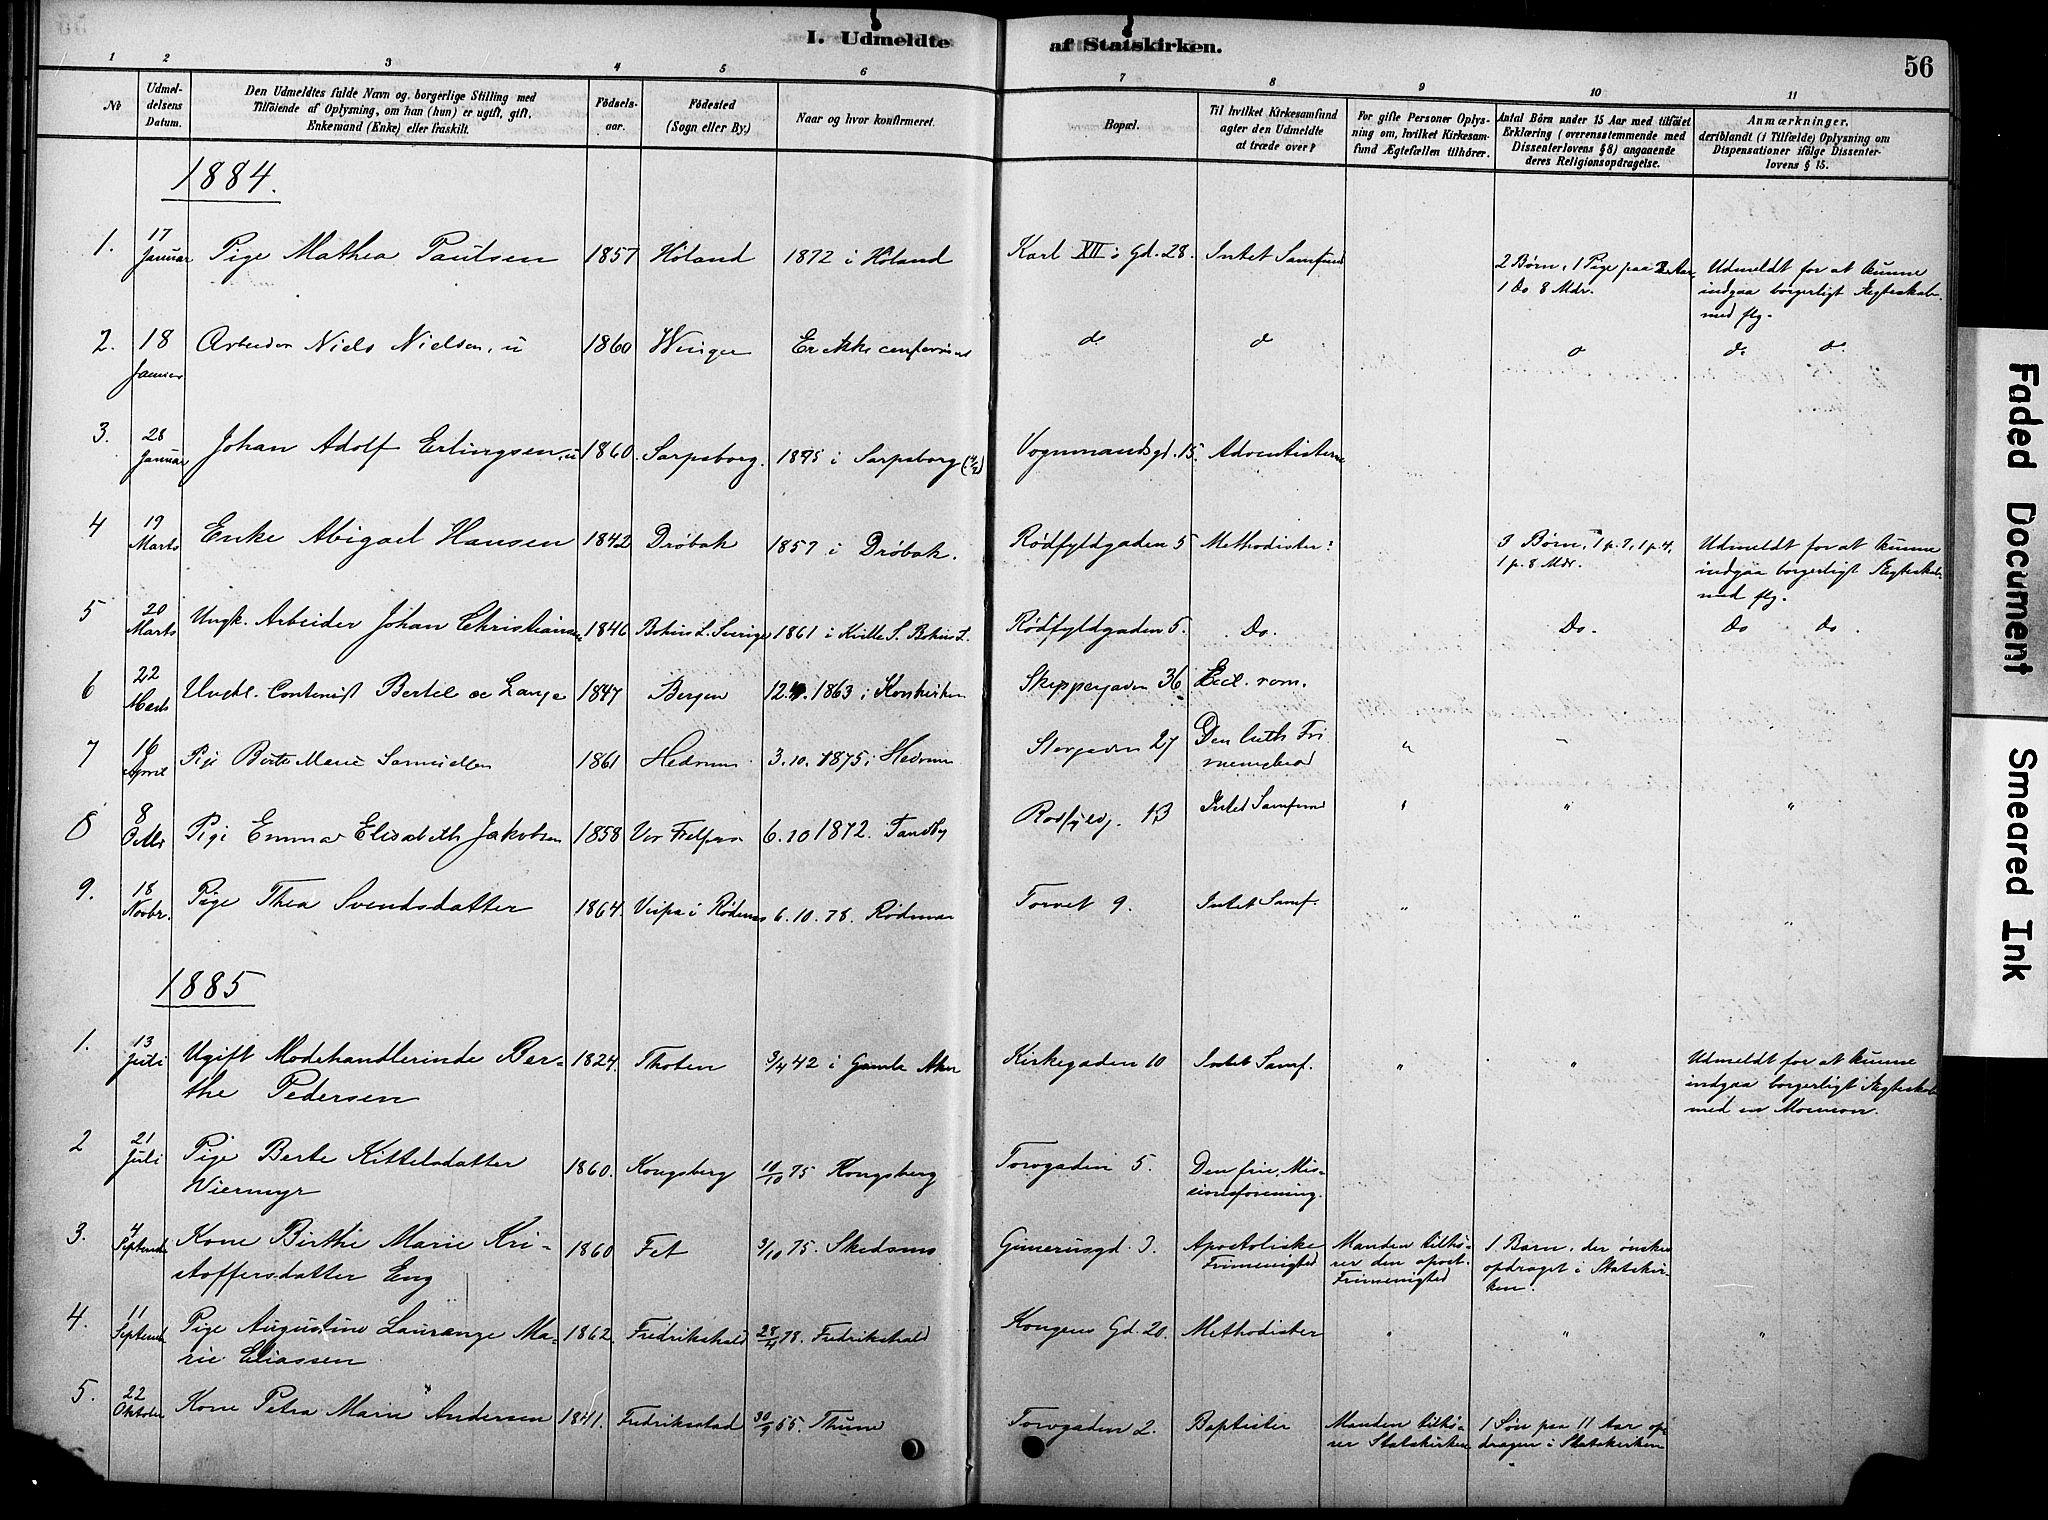 I. Udmeldte af Statskirken.
56
1 2 3 4 5 6 7 8 9 10 11
No
Udmeldelsens Datum.
Den Udmeldtes fulde Navn og borgerlige Stilling med
Tilföiende af Oplysning, om han (hun) er ugift, gift,
Enkemand (Enke) eller fraskilt.
Födselsaar.
Födested
(Sogn eller By.)
Naar og hvor konfirmeret.
Bopæl.
Til hvilket Kirkesamfund
agter den Udmeldte
at træde over?
For gifte Personer Oplysning om, hvilket Kirkesamfund Ægtefællen tilhörer.
Antal Börn under 15 Aar med tilföiet
Erklæring (overensstemmende med
Dissenterlovens § 8) angaaende
deres Religionsopdragelse.
Anmærkninger,
deriblandt (i Tilfælde) Oplysning om
Dispensationer ifölge Dissenterlovens § 15.
1884.
1. 17 Januar Pige Mathea Paulsen 1857 Höland 1872 i Höland Karl XII i Gd. 28. Intet Samfund 2 Børn, 1 Pige paa 2 Aar, 1 Do 8 Mdr. Udmeldt for at kunne indgaa borgerligt Ægteskab med flg.
2. 18 Januar Arbeider Niels Nielsen, u 1860 Winger Er ikke confirmeret do do do do do
3. 28 Januar Johan Adolf Erlingsen, u 1860 Sarpsborg. 1875 i Sarpsborg Vognmandsgd. 15. Adventisterne
4 19 Marts Enke Abigael Hansen 1842 Dröbak 1857 i Dröbak. Rödfyldgaden 5 Methodister 3 Børn, 1 p. 7, 1 p. 4, 1 p. 8 Mdr. Udmeldt for at kunne indgaa borgerligt Ægteskab med flg.
5 20 Marts Ungk. Arbeider Johan Christiansen 1846 Bohus L. Sverige 1861 i Kville S. Bohus L. Rödfyldgaden 5. Do. Do. Do Do.
6 22 Marts Ungkl. Contorist Bertel de Lange 1847 Bergen 1863 i Korskirken Skippergaden 36 Eccl. rom.
7 16 April Pige Berte Marie Samuelsen 1861 Hedrum 3.10.1875 i Hedrum Storgaden 27 Den luth Frimenighed " "
8 8 Octbr Pige Emma Elisabeth Jakobsen 1858 Vor Frelsers 6.10 1872. Rodfyldg. 13 Intet Samfund " " "
9. 18 Novbr. Pige Thea Svendsdatter 1864. i Rödenes 6.10.78. Rödenes Torvet 9. Intet Samf. " " "
1885
1. 13 Juli Ugift Modehandlerinde Berthe Pedersen 1824. Thoten 3/4 42 i Gamle Aker Kirkegaden 10 Intet Samf. " " Udmeldt for at kunne indgaa borgerligt Ægteskab med en Mormon.
2 21 Juli Pige Berte Kittelsdatter Wiermyr 1860. Kongsberg 10/10 75 Kongsberg Torvgaden 5. Den frie Missionsforening.
3. 4 September Kone Birthe Marie Kristoffersdatter Eng 1860 Fet 3/10 75. Skedsmo Grnerusgd. 3. Apostoliske Frimenighed Manden tilhörer den apost. Frimenighed 1 Barn, der önskes opdraget i Statskirken.
4. 11 September Pige Augustine Laurange Marie Eliassen 1862. Fredrikshald 28/4 78. Fredrikshald Kongens Gd. 20. Methodister " " "
5. 22 Oktober Kone Petra Marie Andersen 1841. Fredriksstad 30/9 55. Thune Torvgaden 2. Baptister Manden tilhörer Statskirken 1 Sön paa 11 Aar opdrages i Statskirken
Faded Document
Smeared Ink